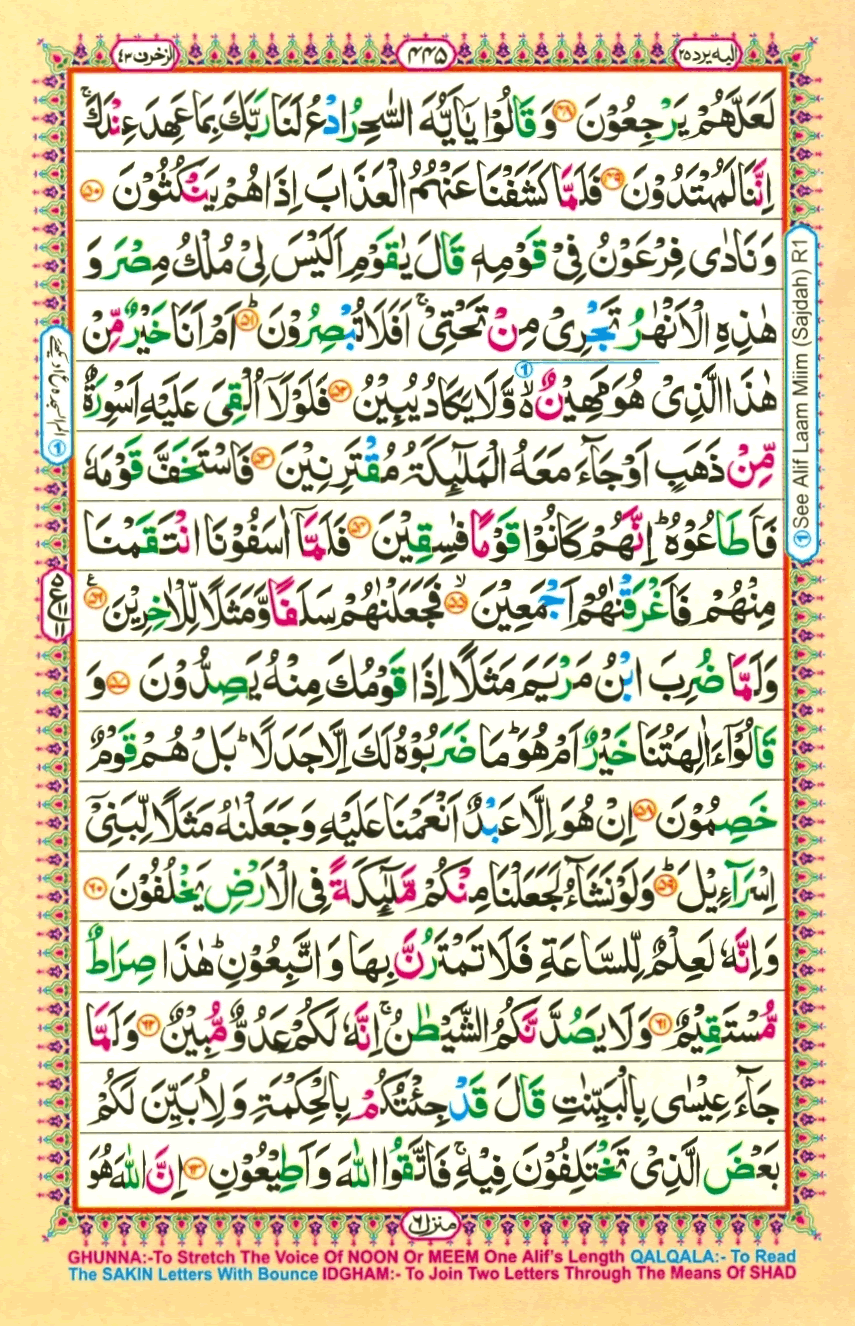 الزخرف ٤٣
٤٤٥
اليه يرد ٢٥
لَعَلَّهُمْ يَرْجِعُوْنَ ﴿٤٨﴾ وَقَالُوْا يٰۤاَيُّهَ السّٰحِرُ ادْعُ لَنَا رَبَّكَ بِمَا عَهِدَ عِنْدَكَ ۚ
اِنَّنَا لَمُهْتَدُوْنَ ﴿٤٩﴾ فَلَمَّا كَشَفْنَا عَنْهُمُ الْعَذَابَ اِذَا هُمْ يَنْكُثُوْنَ ﴿٥٠﴾
وَنَادٰى فِرْعَوْنُ فِيْ قَوْمِهٖ قَالَ يٰقَوْمِ اَلَيْسَ لِيْ مُلْكُ مِصْرَ وَ
هٰذِهِ الْاَنْهٰرُ تَجْرِيْ مِنْ تَحْتِيْ ۚ اَفَلَا تُبْصِرُوْنَ ﴿٥١﴾ ؕ اَمْ اَنَا خَيْرٌ مِّنْ
هٰذَا الَّذِيْ هُوَ مَهِيْنٌ ۙ۬ وَّلَا يَكَادُ يُبِيْنُ ﴿٥٢﴾ فَلَوْلَاۤ اُلْقِيَ عَلَيْهِ اَسْوِرَةٌ
مِّنْ ذَهَبٍ اَوْ جَآءَ مَعَهُ الْمَلٰٓئِكَةُ مُقْتَرِنِيْنَ ﴿٥٣﴾ فَاسْتَخَفَّ قَوْمَهٗ
فَاَطَاعُوْهُ ؕ اِنَّهُمْ كَانُوْا قَوْمًا فٰسِقِيْنَ ﴿٥٤﴾ فَلَمَّاۤ اٰسَفُوْنَا انْتَقَمْنَا
مِنْهُمْ فَاَغْرَقْنٰهُمْ اَجْمَعِيْنَ ﴿٥٥﴾ ۙ فَجَعَلْنٰهُمْ سَلَفًا وَّمَثَلًا لِّلْاٰخِرِيْنَ ﴿٥٦﴾ ع
وَلَمَّا ضُرِبَ ابْنُ مَرْيَمَ مَثَلًا اِذَا قَوْمُكَ مِنْهُ يَصِدُّوْنَ ﴿٥٧﴾ وَ
قَالُوْۤا ءَاٰلِهَتُنَا خَيْرٌ اَمْ هُوَ ؕ مَا ضَرَبُوْهُ لَكَ اِلَّا جَدَلًا ؕ بَلْ هُمْ قَوْمٌ
خَصِمُوْنَ ﴿٥٨﴾ اِنْ هُوَ اِلَّا عَبْدٌ اَنْعَمْنَا عَلَيْهِ وَجَعَلْنٰهُ مَثَلًا لِّبَنِيْۤ
اِسْرَآءِيْلَ ﴿٥٩﴾ ؕ وَلَوْ نَشَآءُ لَجَعَلْنَا مِنْكُمْ مَّلٰٓئِكَةً فِي الْاَرْضِ يَخْلُفُوْنَ ﴿٦٠﴾
وَاِنَّهٗ لَعِلْمٌ لِّلسَّاعَةِ فَلَا تَمْتَرُنَّ بِهَا وَاتَّبِعُوْنِ ؕ هٰذَا صِرَاطٌ
مُّسْتَقِيْمٌ ﴿٦١﴾ وَلَا يَصُدَّنَّكُمُ الشَّيْطٰنُ ۚ اِنَّهٗ لَكُمْ عَدُوٌّ مُّبِيْنٌ ﴿٦٢﴾ وَلَمَّا
جَآءَ عِيْسٰى بِالْبَيِّنٰتِ قَالَ قَدْ جِئْتُكُمْ بِالْحِكْمَةِ وَلِاُبَيِّنَ لَكُمْ
بَعْضَ الَّذِيْ تَخْتَلِفُوْنَ فِيْهِ ۚ فَاتَّقُوا اللّٰهَ وَاَطِيْعُوْنِ ﴿٦٣﴾ اِنَّ اللّٰهَ هُوَ
① See Alif Laam Miim (Sajdah) R1
منزل ٦
GHUNNA:-To Stretch The Voice Of NOON Or MEEM One Alif's Length QALQALA:- To Read
The SAKIN Letters With Bounce IDGHAM:- To Join Two Letters Through The Means Of SHAD